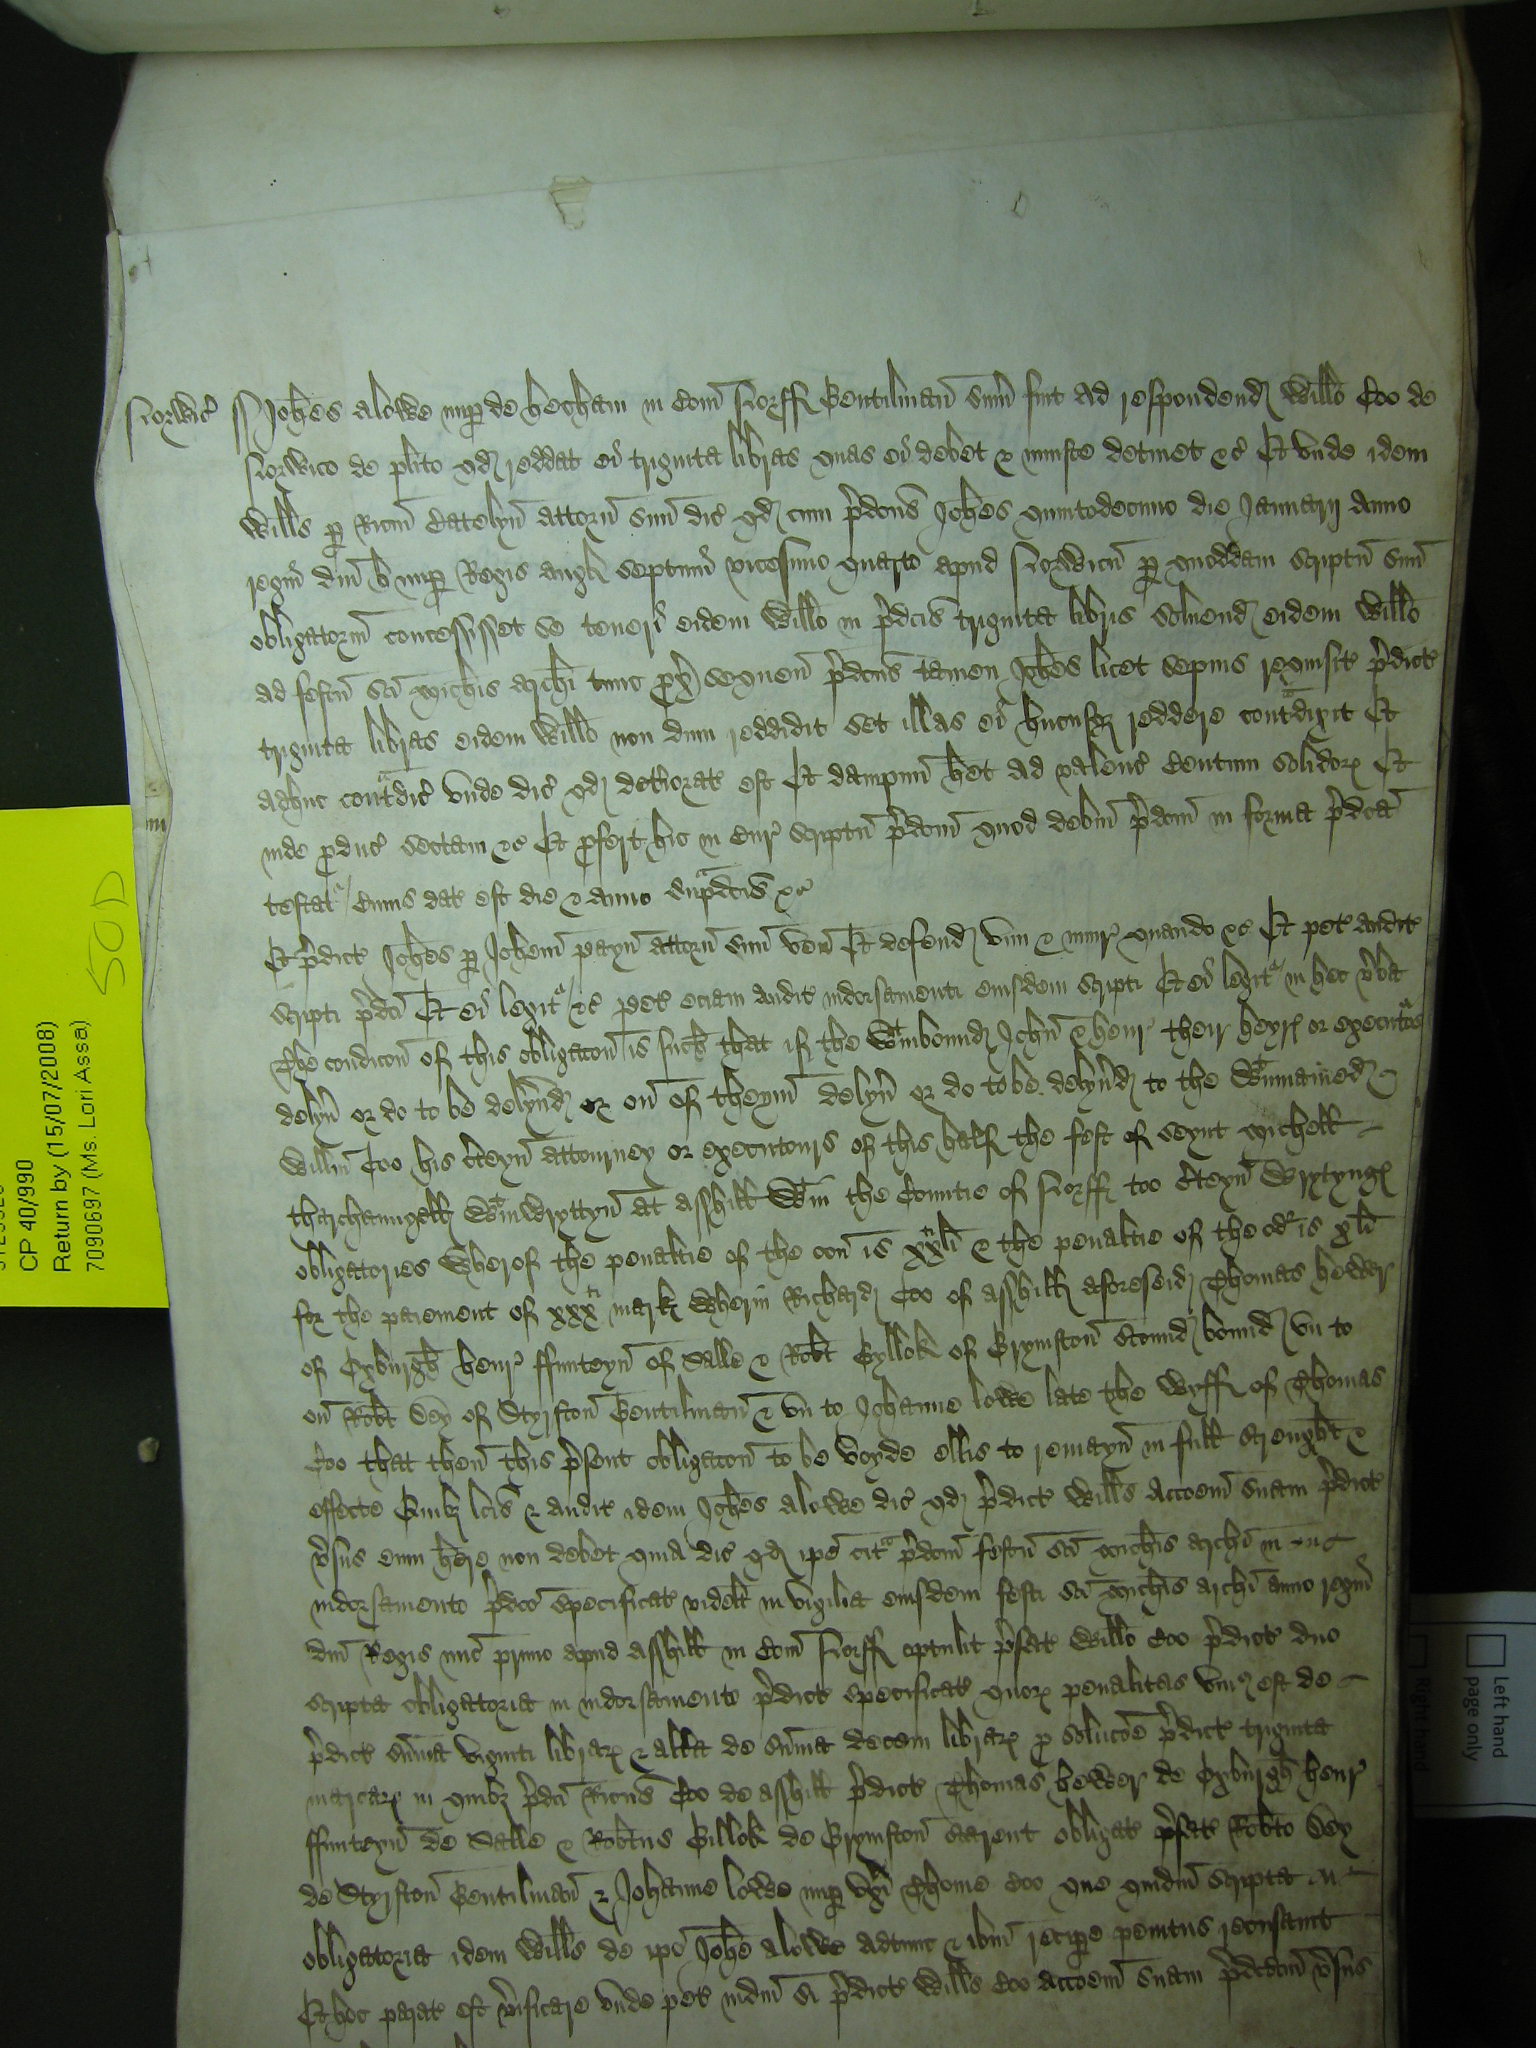 Norwic̃ ss Joh̃es Alowe nup̱ de hecham in Com̃ Norff Gentilman̄ sum̃ fuit ad respondend̃ Will̃o Coo de
Norwico de pl̃ito qd̃ reddat ei triginta libras quas ei debet & iniuste detinet &c̃ Et unde idem
Will̃s p̱ Ric̃m Catelyn̄ attorn̄ suũ dic̃ qd̃ cum p̃dc̃us Joh̃es quintodecimo die Januarij anno
regni dñi H nup̱ Regis angl̃ septimi vicesimo quarto apud Norwicũ p̱ quoddam scriptũ suũ
obligatoriũ concessisset se teneri eidem Will̃o in p̃dc̃is triginta libris solvend̃ eidem Will̃o
ad festũ sc̃i Mich̃is arch̃i tunc p̱x̃ sequen̄ p̃dc̃us tamen Joh̃es licet sepius requisit̃ p̃dict̃
triginta libras eidem Will̃o non dum reddidit set illas ei hucusq̨ reddere cont̃dixit Et
adhuc cont̃dic̃ unde dic̃ qd̃ det̃iorat̃ est Et dampnũ h̃et ad valenc̃ Centum solidoꝝ Et
inde p̱duc̃ sectam &c̃ Et p̱fert hic in Cur̃ scriptũ p̃dc̃m̃ quod debitũ p̃dc̃m̃ in forma p̃dc̃a
testat̃ Cuius dat̃ est die & anno sup̃dc̃is &c̃
Et p̃dict̃ Joh̃es p̱ Joh̃em payn̄ attorn̄ suũ ven̄ Et defend̃ vim & iniur̃ quando &c̃ Et pet̃ audit̃
scripti p̃dc̃i Et ei legit̃ &c̃ pet̃ eciam audit̃ indorsamenti eiusdem scripti Et ei legit̃ in hec v̾ba
The condic̃on̄ of this obligac̃on̄ is such that if the wᵗinbound̃ John̄ & henr̃ their heyr̃ or executo͏ʳs
delyv̾ or do to be delyv̾d̃ or on̄ of theym̄ delyv̾ or do to be delyv̾d̃ to the wᵗinnamed̃
Will̃m Coo his c̾teyn̄ attourney or executours of this half the fest of Seynt Michell
tharchaungell̃ wᵗinwryttyn̄ at asshill wᵗin the Countie of Norff too c̾teyn̄ wrytyngẽ
obligatories wherof the penaltie of the on̄ is xxᵗⁱ li & the penaltie of the od̾ is x li
for the paiement of xxxᵗⁱ mark̃ wherin Richard̃ Coo of asshill aforeseid̃ Thomas hewer
of Oxburgh̃ henr̃ ffunteyn̄ of Salle & Rob̃t Gyllok of Grymston̄ stound̃ bound̃ un to
on̄ Rob̃t Dey of Styrston̄ Gentilman̄ & un to Johanne Lowe late the wyff of Thomas
Coo that then̄ this p̃sent obligac̃on̄ to be voyde ellis to remayn̄ in full strenght &
effecte Quib̨ l̃cis & audit̃ idem Joh̃es Alowe dic̃ qd̃ p̃dict̃ Will̃s acc̃oem̃ suam p̃dict̃
v̾sus eum h̃ere non debet quia dic̃ qd̃ ip̃e cit̃ p̃dc̃m̃ festũ sc̃i Mich̃is arch̃i in
indorsamento p̃dc̃o specificat̃ videl̃t in vigilia eiusdem festi sc̃i Mich̃is arch̃i anno regni
dñi Regis nũc primo apud asshill in Com̃ Norff optulit p̃fat̃ Will̃o Coo p̃dict̃ duo
scripta obligatoria in indorsamento p̃dict̃ specificat̃ quoꝝ penalitas uniꝰ est de
p̃dict̃ sum̃a viginti libraꝝ & alt̾a de sum̃a decem libraꝝ p̱ soluc̃oe p̃dict̃ triginta
marcaꝝ in quib̨ p̃dc̃i Ric̃us Coo de asshill p̃dict̃ Thomas hewer de Oxburgh̃ henr̃
ffunteyn̄ de Salle & Rob̃tus Gillok de Grymston̄ starent obligat̃ p̃fat̃ Rob̃to Dey
de Styrston̄ Gentilman̄ & Johanne Lowe nup̱ ux̃i Thome Coo que quidm̃ scripta
obligatoria idem Will̃s de ip̃o Joh̃e Alowe adtunc & ib̃m recip̱e penitus recusavit
Et hoc parat̃ est v̾ificare unde pet̃ iudm̃ si p̃dict̃ Will̃s Coo acc̃oem̃ suam p̃dc̃am̃ v̾sus
CP 40/990
Return by (15/07/2008)
7090697 (Ms. Lori Assa)
50D
Left hand
page only
Right hand